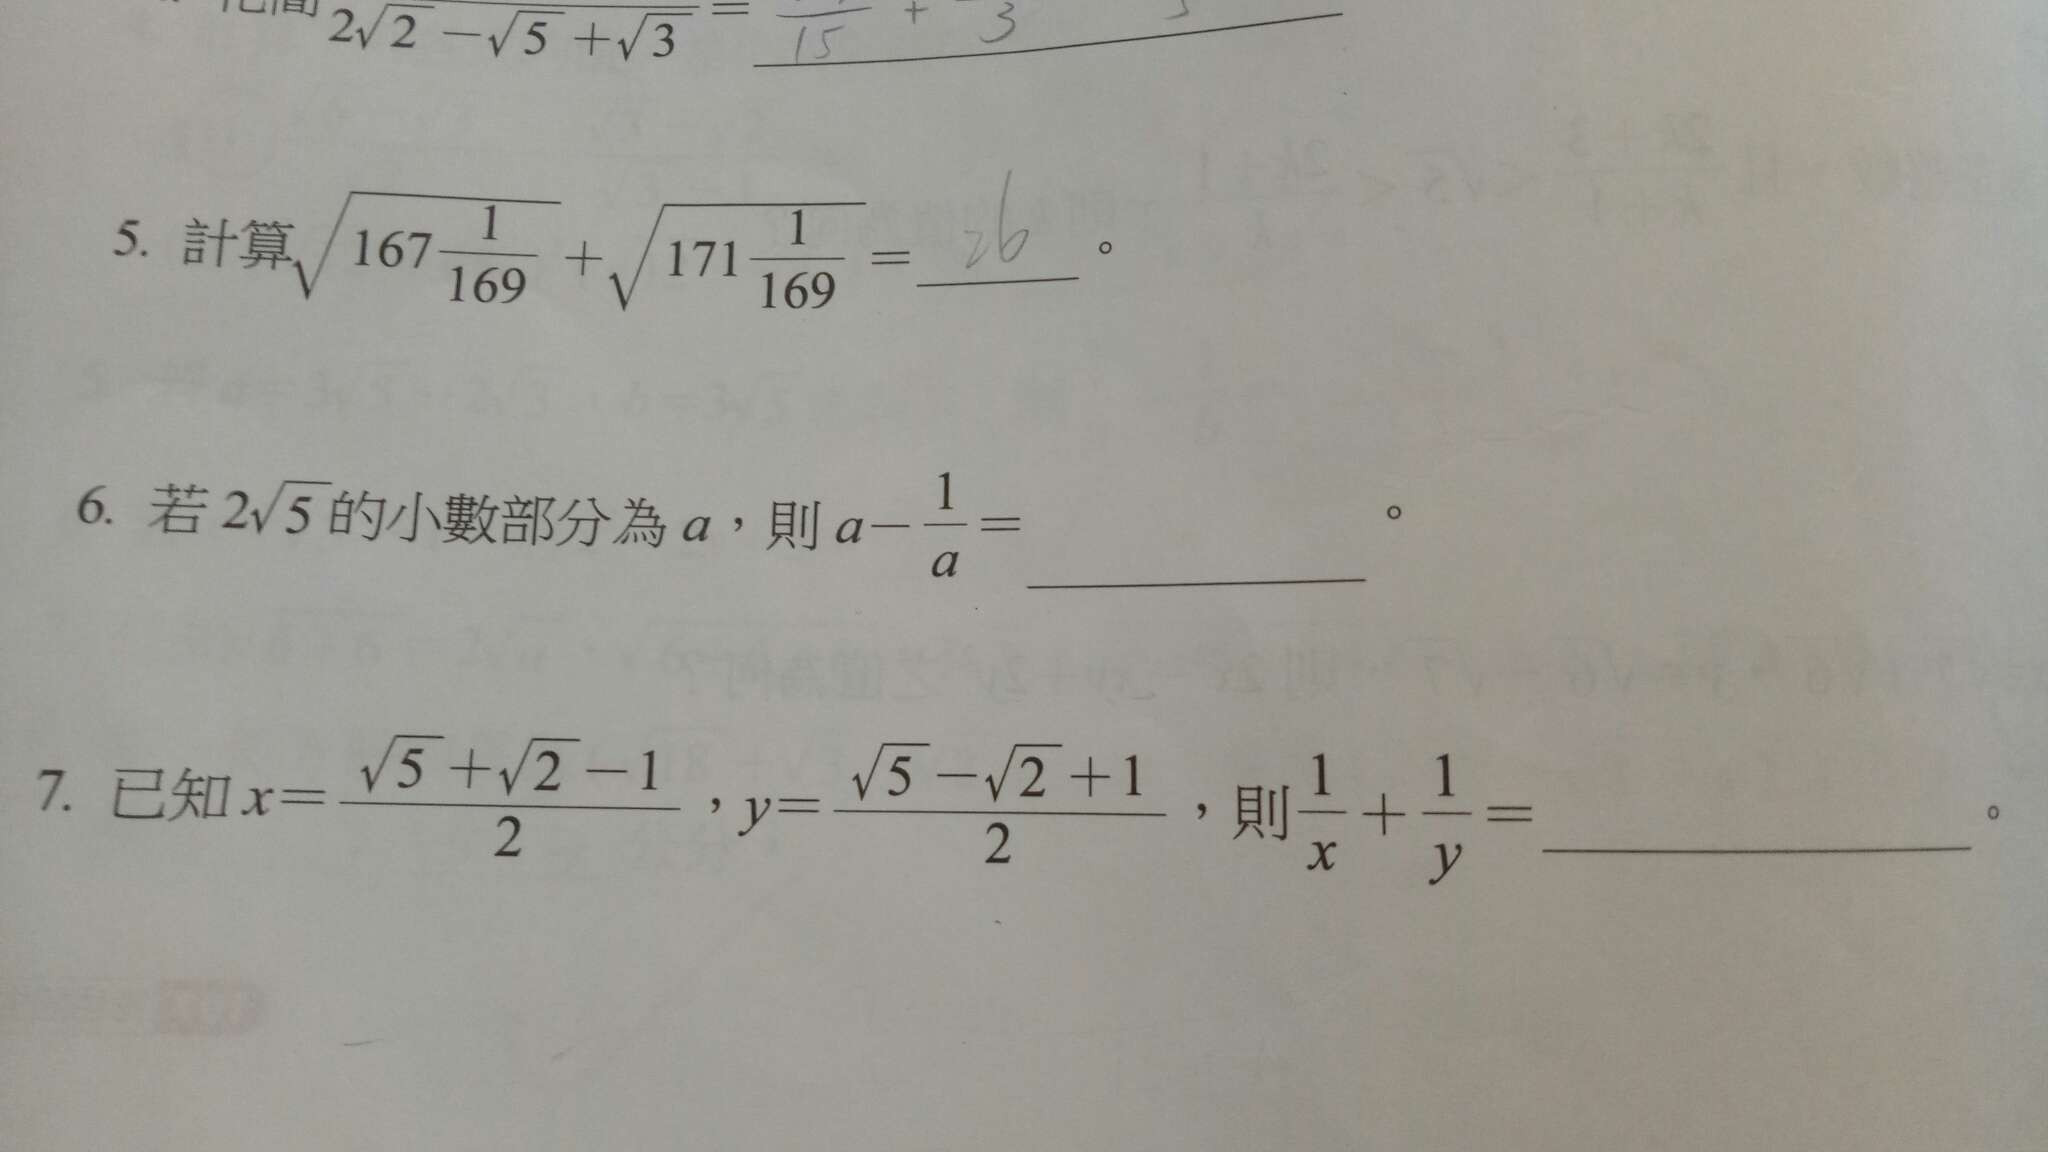 化簡 2√2 −√5 +√3 = 15 + 3
5. 計算√167 1/169 + √171 1/169 = 26 。
6. 若 2√5 的小數部分為 a，則 a − 1/a = ______ 。
7. 已知 x = (√5 + √2 − 1)/2，y = (√5 − √2 + 1)/2，則 1/x + 1/y = ______ 。